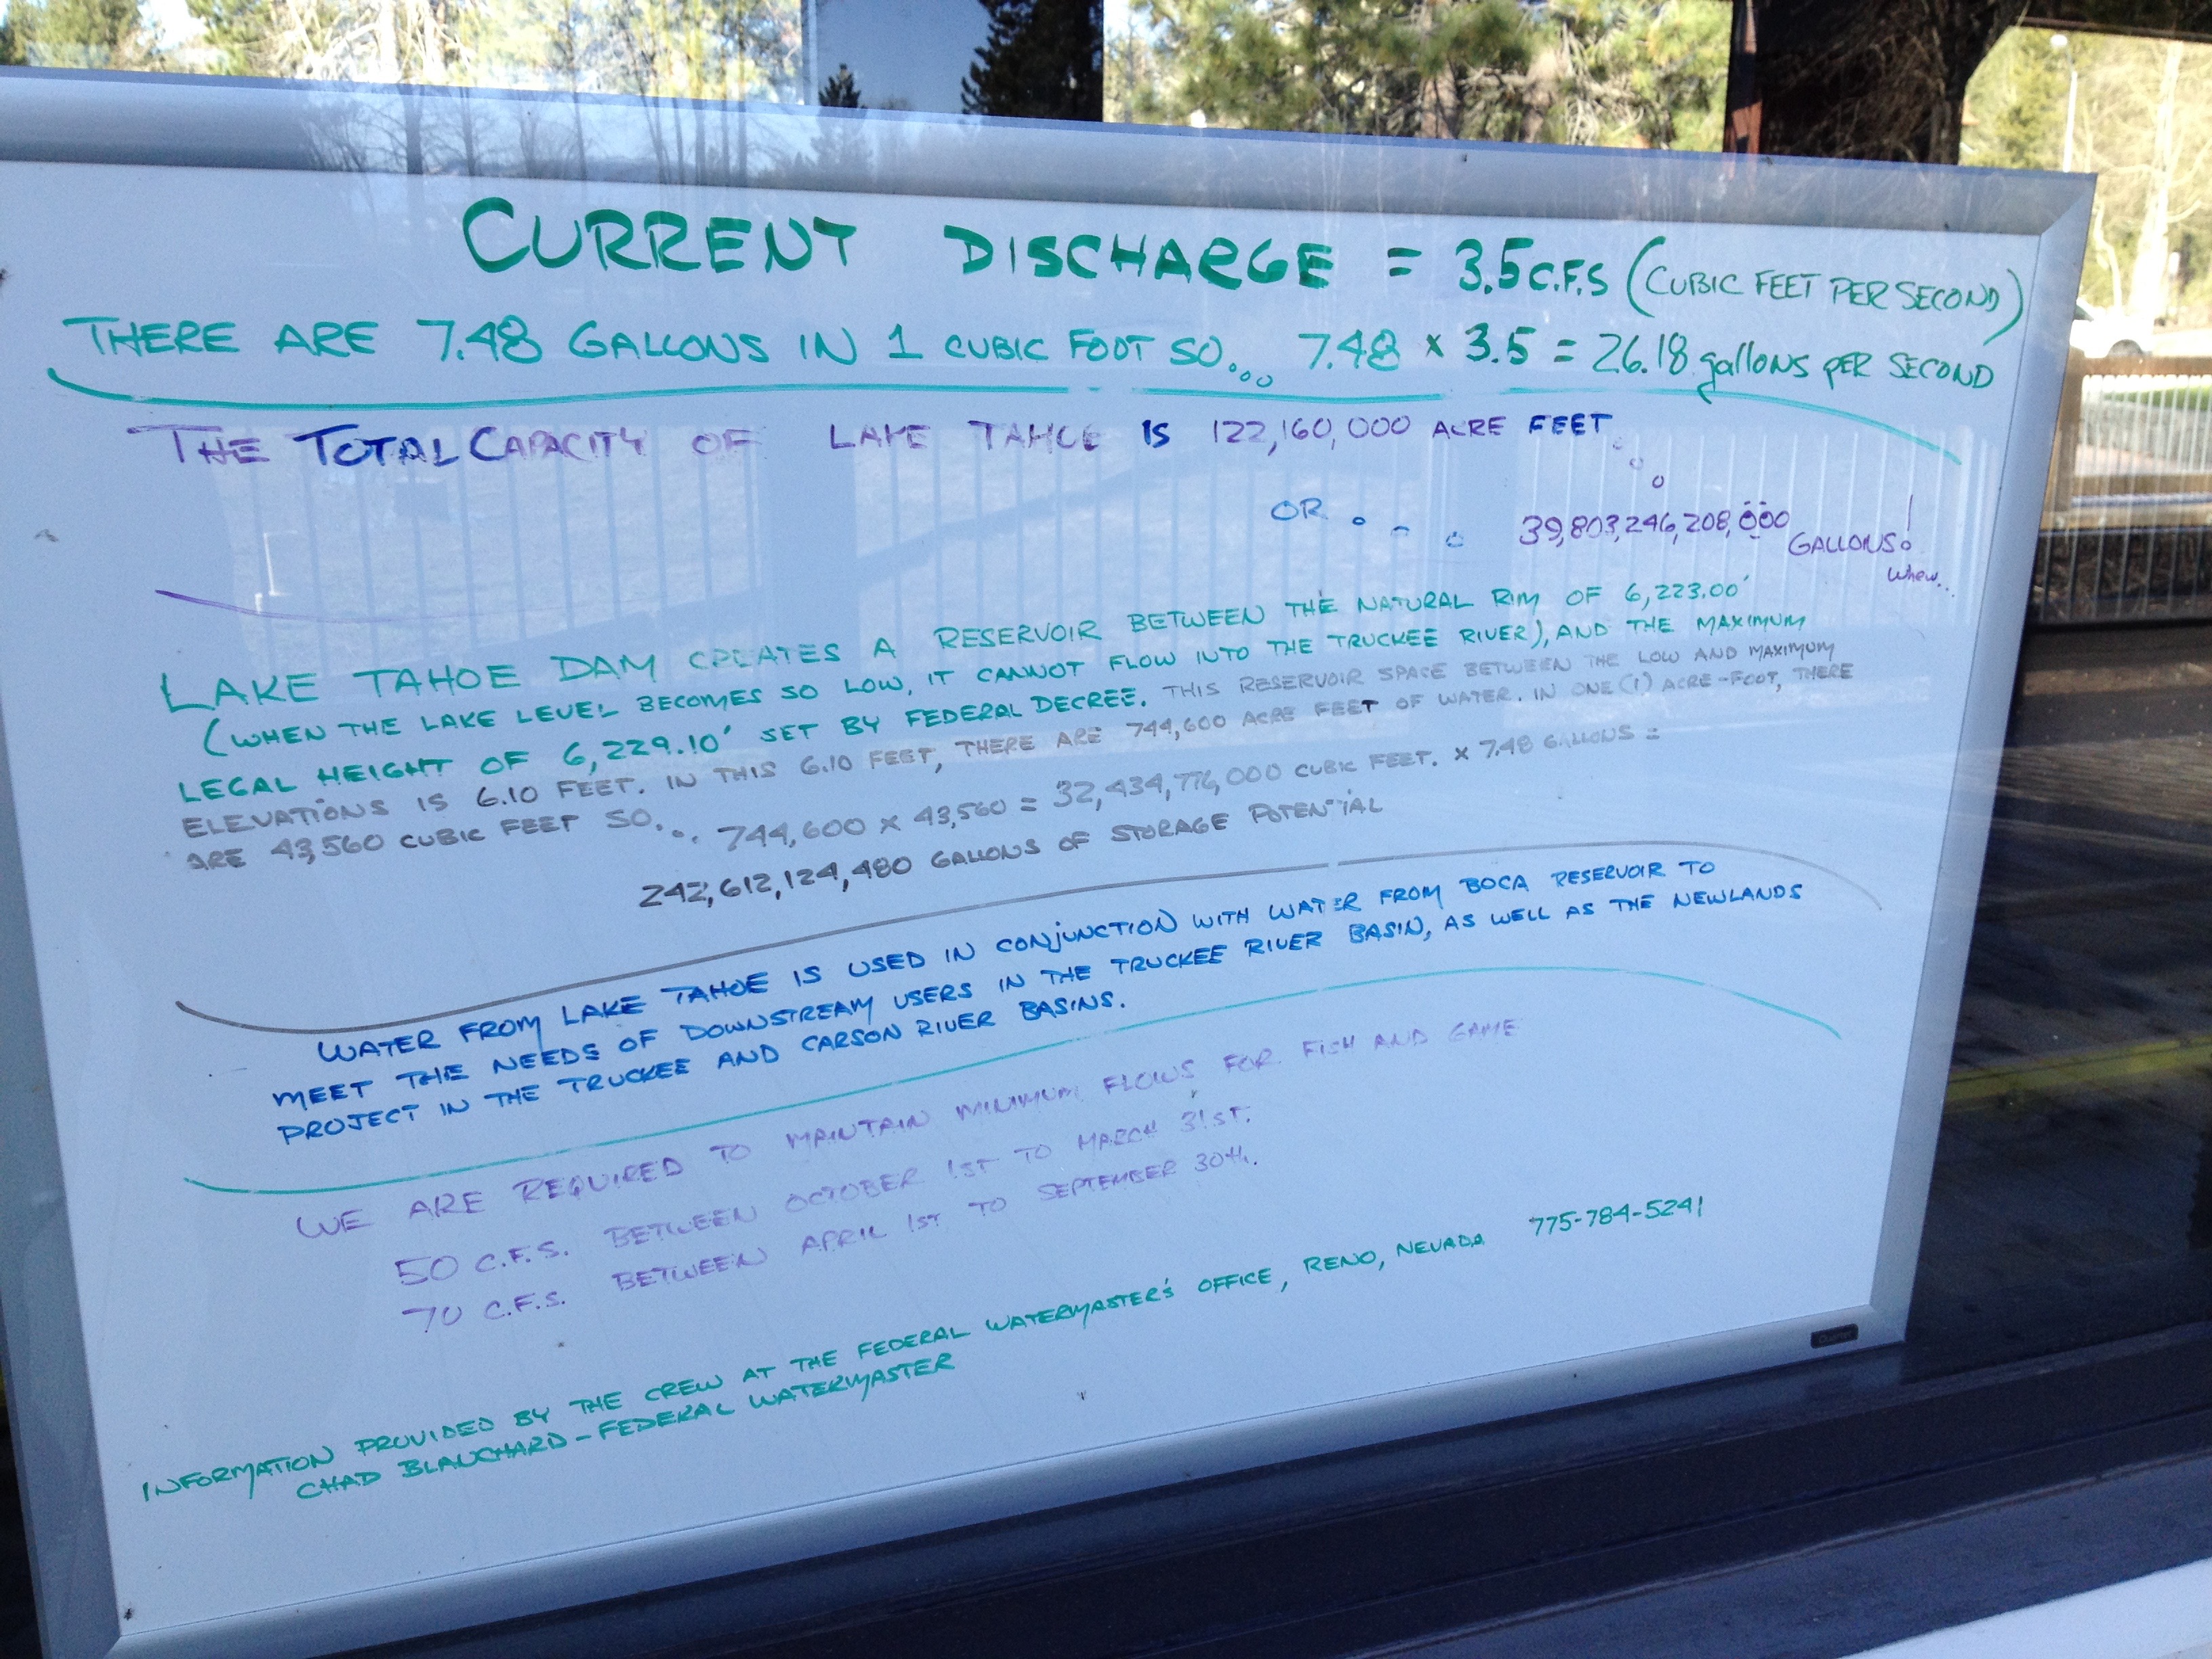 CURRENT DISCHARGE = 3.5 C.F.S (CUBIC FEET PER SECOND)
THERE ARE 7.48 GALLONS IN 1 CUBIC FOOT SO... 7.48 x 3.5 = 26.18 gallons PER SECOND
THE TOTAL CAPACITY OF LAKE TAHOE IS 122,160,000 ACRE FEET...
OR... 39,803,246,208,000 GALLONS!
Whew...
LAKE TAHOE DAM CREATES A RESERVOIR BETWEEN THE NATURAL RIM OF 6,223.00'
(WHEN THE LAKE LEVEL BECOMES SO LOW, IT CANNOT FLOW INTO THE TRUCKEE RIVER), AND THE MAXIMUM
LEGAL HEIGHT OF 6,229.10' SET BY FEDERAL DECREE. THIS RESERVOIR SPACE BETWEEN THE LOW AND MAXIMUM
ELEVATIONS IS 6.10 FEET. IN THIS 6.10 FEET, THERE ARE 744,600 ACRE FEET OF WATER. IN ONE (1) ACRE-FOOT, THERE
ARE 43,560 CUBIC FEET SO... 744,600 x 43,560 = 32,434,776,000 CUBIC FEET. x 7.48 GALLONS =
242,612,124,480 GALLONS OF STORAGE POTENTIAL
WATER FROM LAKE TAHOE IS USED IN CONJUNCTION WITH WATER FROM BOCA RESERVOIR TO
MEET THE NEEDS OF DOWNSTREAM USERS IN THE TRUCKEE RIVER BASIN, AS WELL AS THE NEWLANDS
PROJECT IN THE TRUCKEE AND CARSON RIVER BASINS.
WE ARE REQUIRED TO MAINTAIN MINIMUM FLOWS FOR FISH AND GAME
50 C.F.S. BETWEEN OCTOBER 1ST TO MARCH 31ST.
70 C.F.S. BETWEEN APRIL 1ST TO SEPTEMBER 30th.
INFORMATION PROVIDED BY THE CREW AT THE FEDERAL WATERMASTER'S OFFICE, RENO, NEVADA 775-784-5241
CHAD BLANCHARD - FEDERAL WATERMASTER